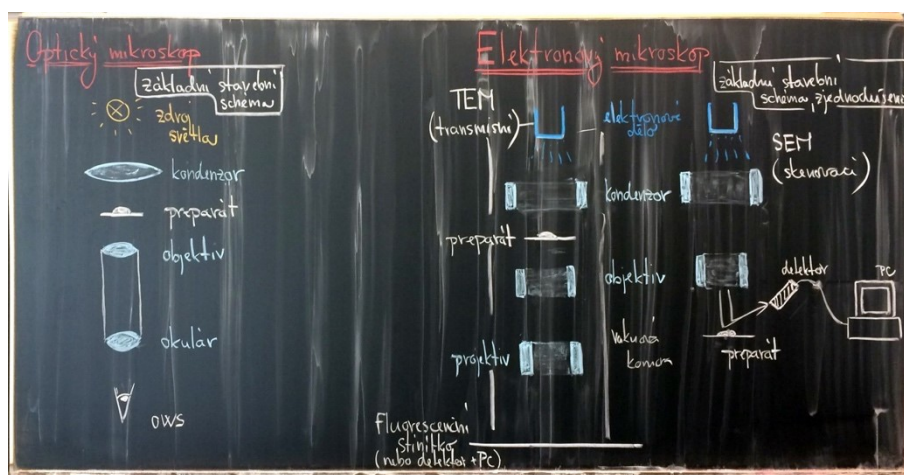 Optický mikroskop
základní stavební
schema
zdroj
světla
kondenzor
preparát
objektiv
okulár
OWS
Elektronový mikroskop
základní stavební
schema, zjednodušené
TEM
(transmisní)
elektronové
dělo
SEM
(skenovací)
kondenzor
preparát
objektiv
detektor
PC
projektiv
vakuová
komora
preparát
Fluorescenční
stínítko
(nebo detektor + PC)